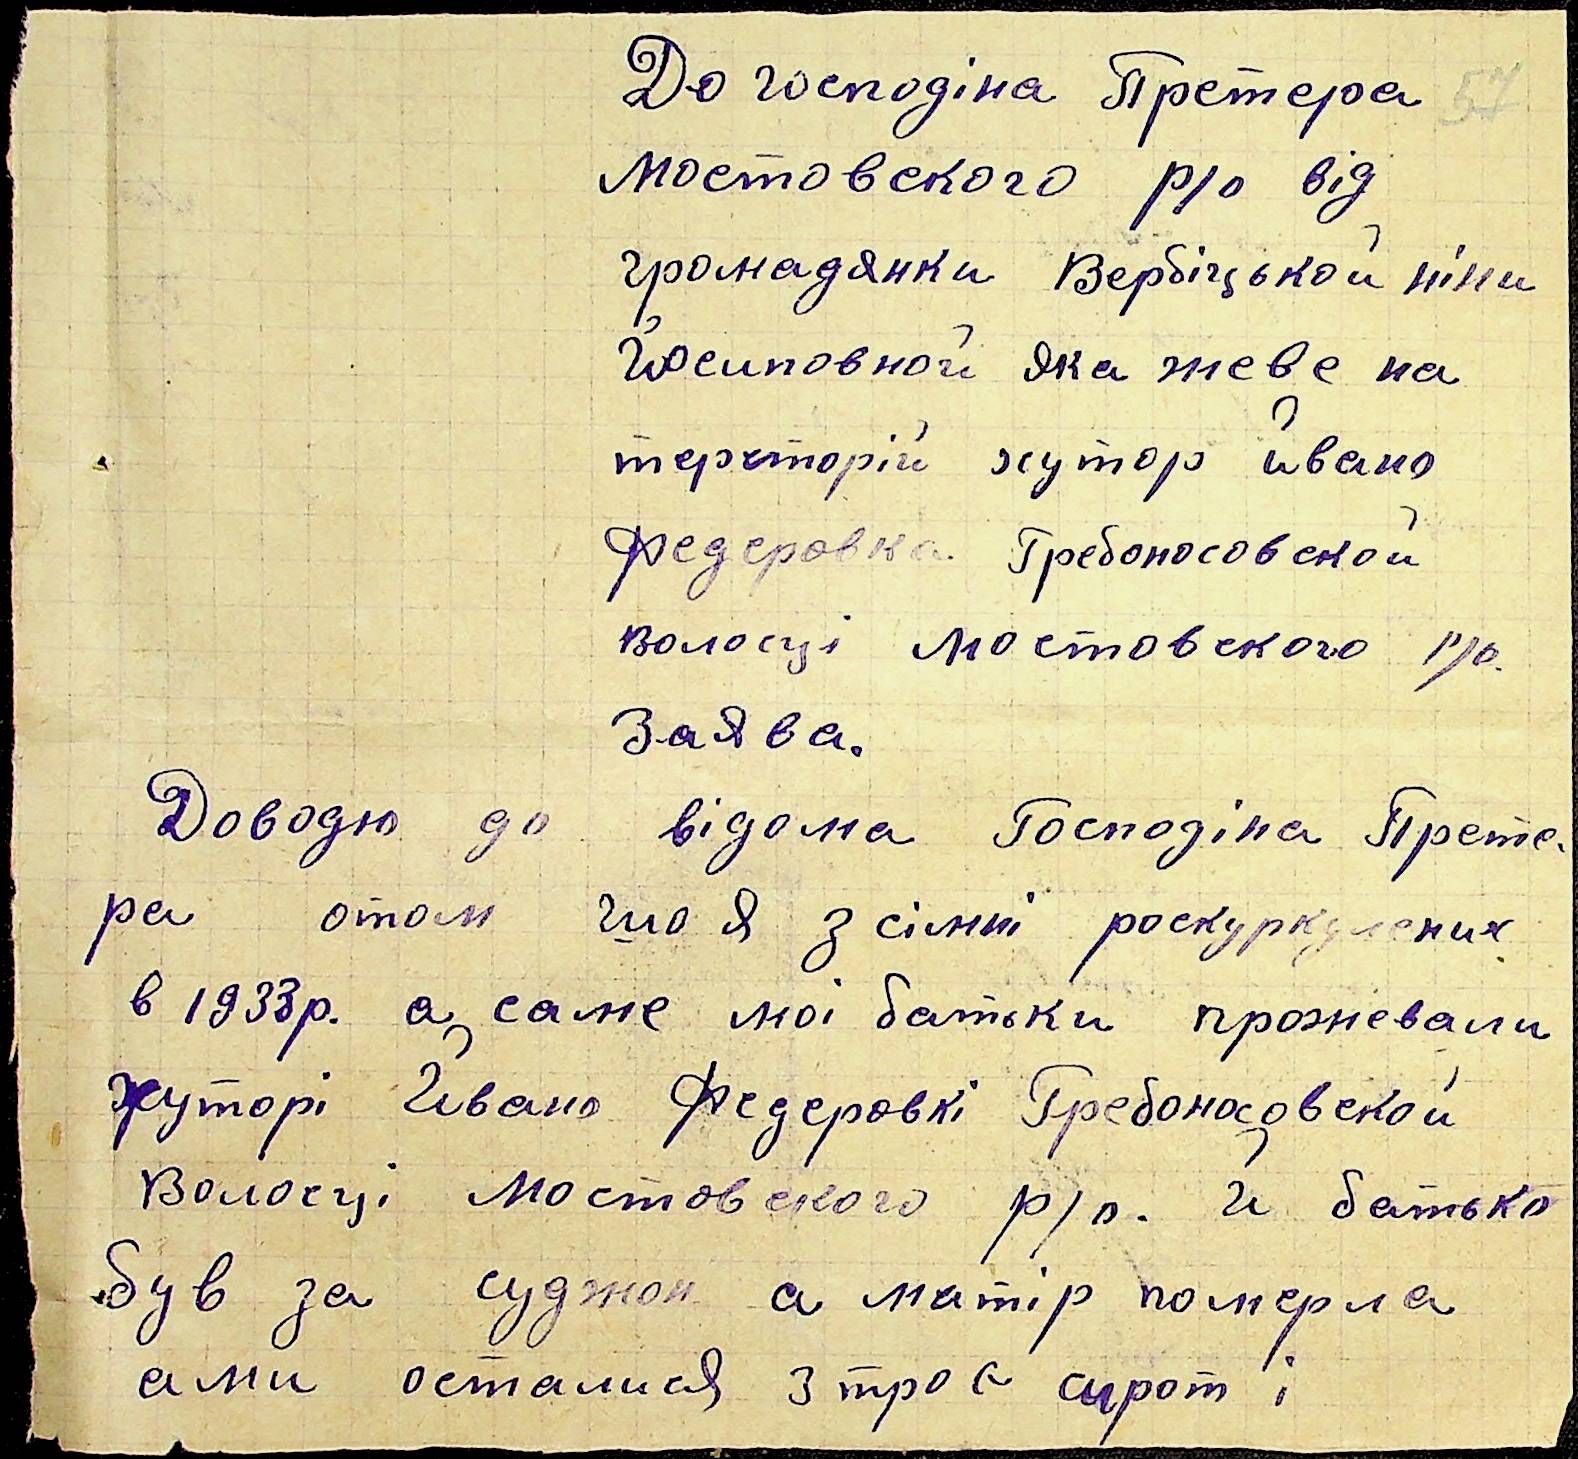 До господіна Претера 57
Мостовского р/о від
громадянки Вербіцькой ніни
Йосиповной яка жеве на
терєторій хутор йвано
Федеровка Гребоносовской
Волосці Мостовского р/о.
Заява.
Доводю до відома Господіна Прете-
ра отом що я з сімні роскуркулених
в 1933р. а саме моі батьки прожевали
хуторі Йвано Федеровкі Гребоносовской
Волосці Мостовского р/о. Й батько
був за суджон а матір померла
ами осталися з троє сирот і